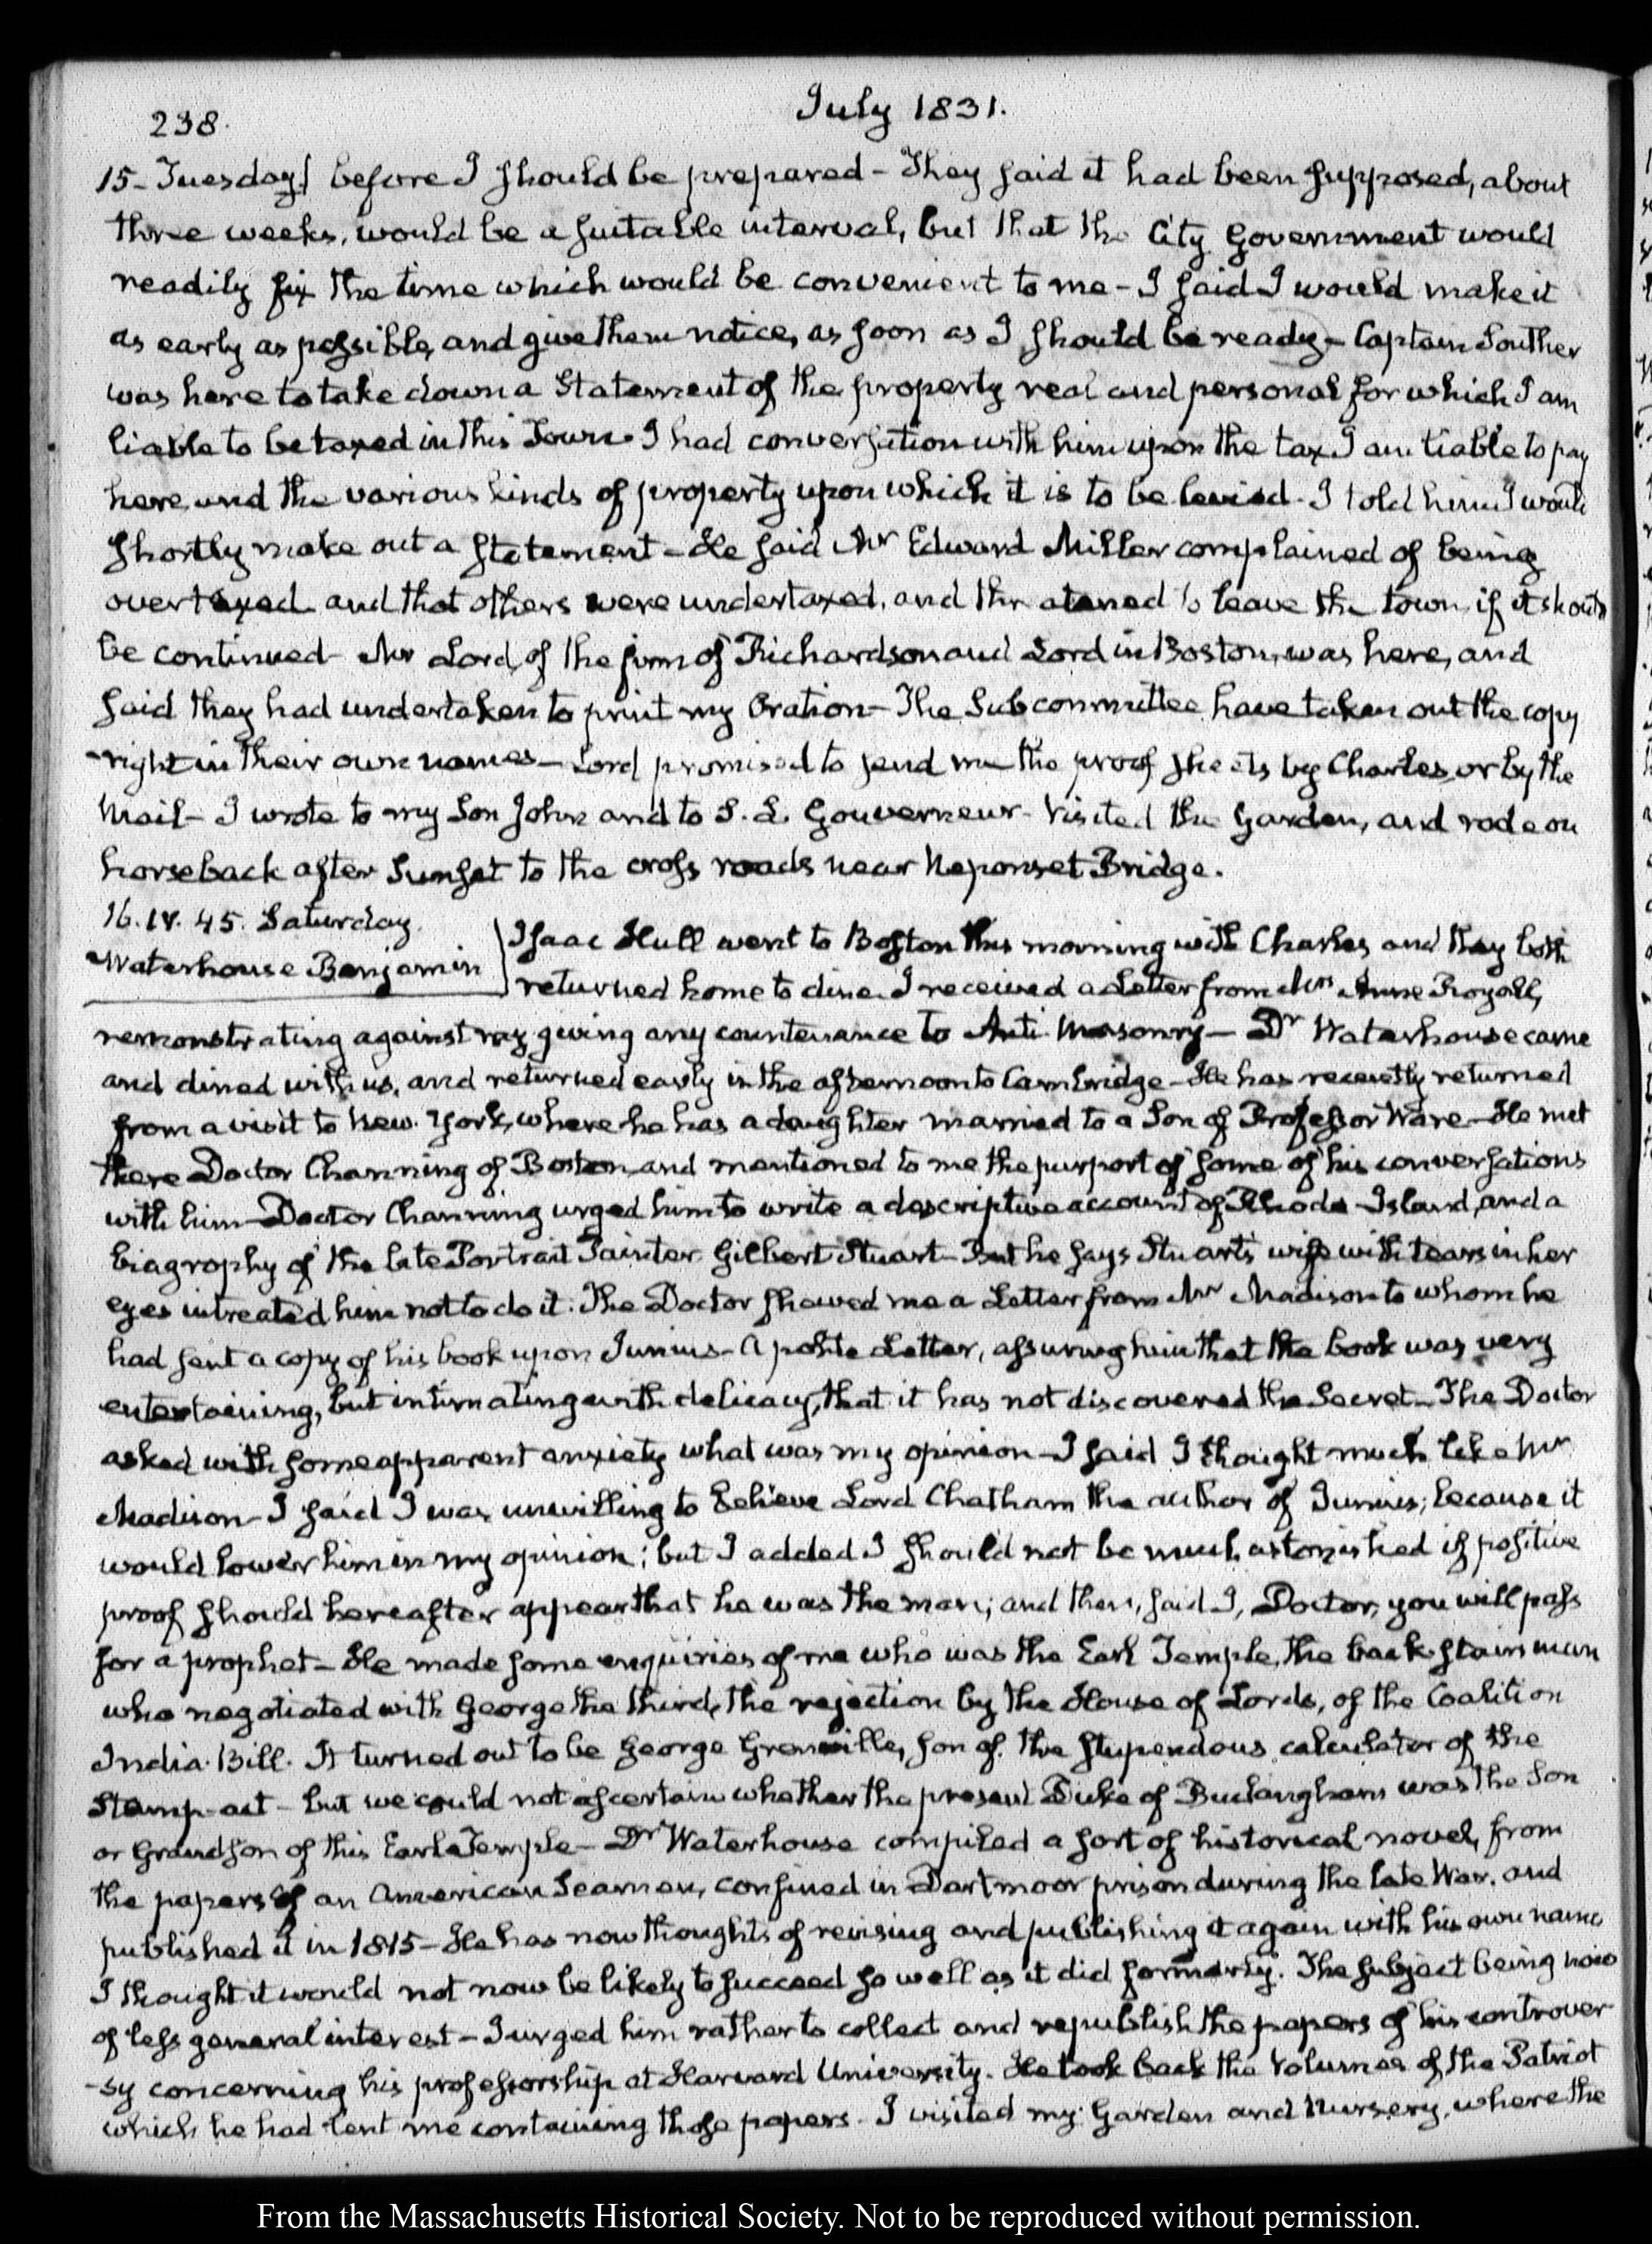 238.
July 1831.
15- Tuesday] before I should be prepared - They said it had been supposed, about
three weeks, would be a suitable interval, but that the City Government would
readily fix the time which would be convenient to me - I said I would make it
as early as possible, and give them notice, as soon as I should be ready - Captain Souther
was here to take down a Statement of the property real and personal for which I am
liable to be taxed in this Town. I had conversation with him upon the tax I am liable to pay
here, and the various kinds of property upon which it is to be levied - I told him I would
shortly make out a statement - He said Mr Edward Miller complained of being
overtaxed and that others were undertaxed, and threatened to leave the town, if it should
be continued - Mr Lord, of the firm of Richardson and Lord in Boston, was here, and
said they had undertaken to print my Oration - The Subcommittee have taken out the copy
-right in their own names - Lord promised to send me the proof sheets by Charles, or by the
Mail - I wrote to my Son John and to S. L. Gouverneur - Visited the Garden, and rode on
horseback after Sunset to the cross roads near Neponset Bridge.
16. IV. 45. Saturday.
Waterhouse Benjamin
Isaac Hull went to Boston this morning with Charles and they both
returned home to dine. I received a Letter from Mrs Anne Royall,
remonstrating against my giving any countenance to Anti Masonry - Dr Waterhouse came
and dined with us, and returned early in the afternoon to Cambridge - He has recently returned
from a visit to New-York, where he has a daughter married to a Son of Professor Ware - He met
there Doctor Channing of Boston and mentioned to me the purport of some of his conversations
with him - Doctor Channing urged him to write a descriptive account of Rhode-Island, and a
biagrophy of the late Portrait Painter Gilbert Stuart - But he says Stuart's wife with tears in her
eyes intreated him not to do it. The Doctor showed me a Letter from Mr Madison to whom he
had sent a copy of his book upon Junius - A polite Letter, assuring him that the book was very
entertaining, but intimating with delicacy, that it has not discovered the Secret - The Doctor
asked with some apparent anxiety what was my opinion - I said I thought much like Mr
Madison - I said I was unwilling to believe Lord Chatham the author of Junius; because it
would lower him in my opinion; but I added I should not be much astonished if positive
proof should hereafter appear that he was the man; and then, said I, Doctor, you will pass
for a prophet - He made some enquiries of me who was the Earl Temple, the back-stairs man
who negotiated with George the third, the rejection by the House of Lords, of the Coalition
India-Bill. It turned out to be George Grenville, son of the stupendous calculator of the
Stamp-act - but we could not ascertain whether the present Duke of Buckingham was the Son
or Grandson of this Earl Temple - Dr Waterhouse compiled a sort of historical novel, from
the papers of an American Seaman, confined in Dartmoor prison during the late War, and
published it in 1815 - He has now thoughts of revising and publishing it again with his own name
I thought it would not now be likely to succeed so well as it did formerly. The subject being now
of less general interest - I urged him rather to collect and republish the papers of his controver
-sy concerning his professorship at Harvard University. He took back the Volumes of the Patriot
which he had lent me containing those papers - I visited my Garden and Nursery, where the
From the Massachusetts Historical Society. Not to be reproduced without permission.